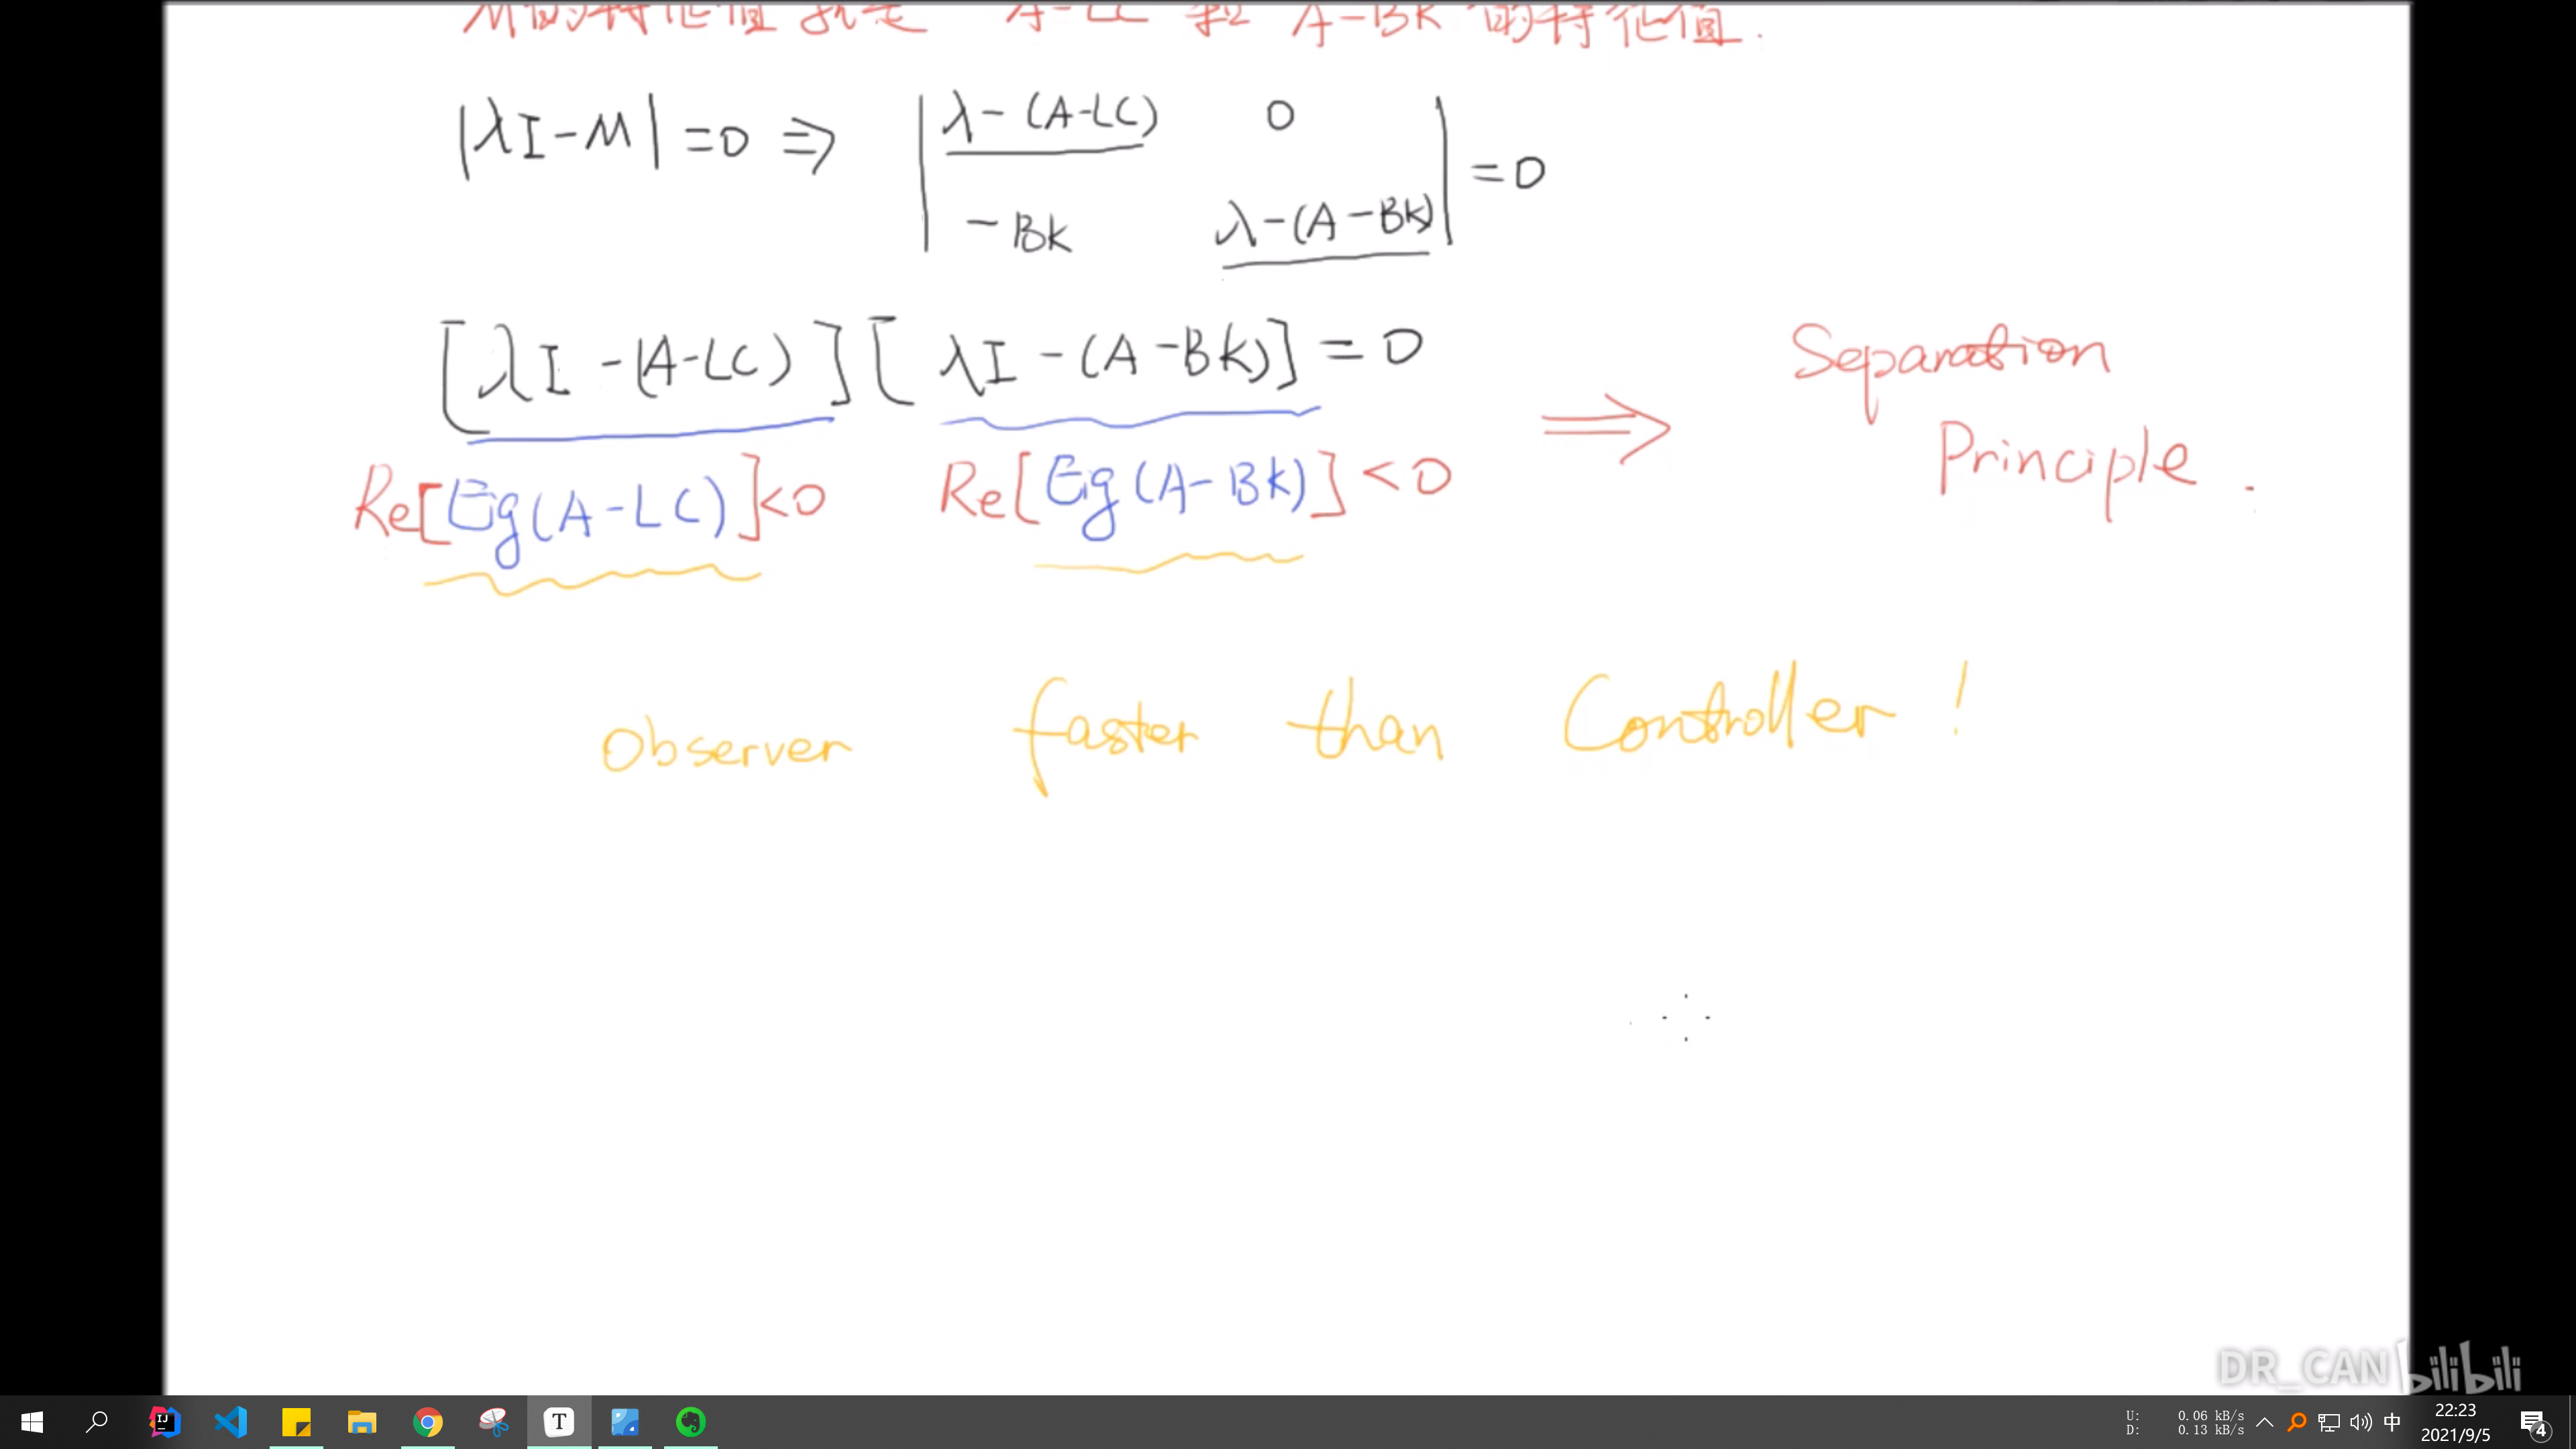 M的特征值就是 A-LC 和 A-BK 的特征值.
|λI-M|=0 ⇒ | λ-(A-LC) 0
-BK λ-(A-BK) | =0
[λI-(A-LC)][λI-(A-BK)]=0
Re[Eig(A-LC)]<0 Re[Eig(A-BK)]<0 ⇒ Separation
Principle.
Observer faster than Controller!
DR_CAN bilibili
U: 0.06 kB/s
D: 0.13 kB/s
中
22:23
2021/9/5
4